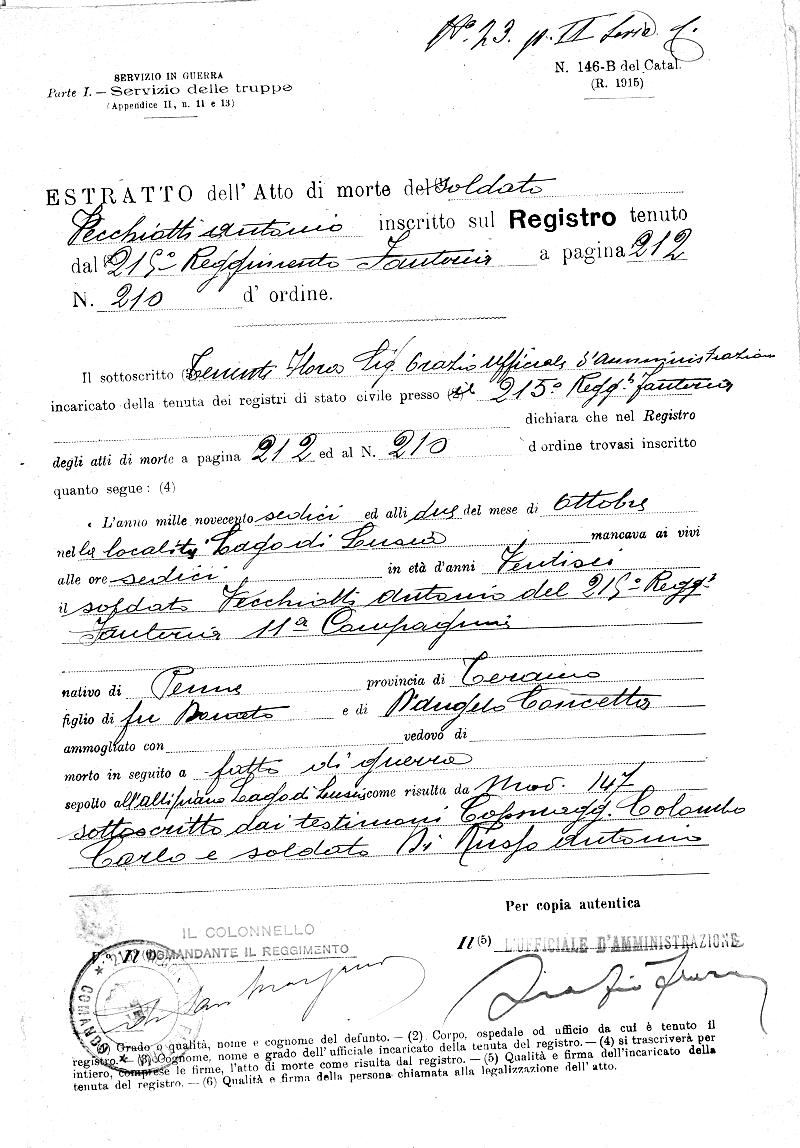 No. 23. p. II Serie C.
SERVIZIO IN GUERRA
Parte I. — Servizio delle truppe
(Appendice II, n. 11 e 13)
N. 146-B del Catal.
(R. 1915)
ESTRATTO dell' Atto di morte del (1) Soldato
Vecchiotti Antonio inscritto sul Registro tenuto
dal (2) 215º Reggimento Fanteria a pagina 212
N. 210 d' ordine.
Il sottoscritto (3) Tenente Sig Orazio Ufficiale d'Amministrazione
incaricato della tenuta dei registri di stato civile presso il 215º Regg.to Fanteria
dichiara che nel Registro
degli atti di morte a pagina 212 ed al N. 210 d ordine trovasi inscritto
quanto segue: (4)
« L'anno mille novecento sedici ed alli due del mese di Ottobre
nella località Lago di Lusia mancava ai vivi
alle ore sedici in età d'anni Ventisei
il soldato Vecchiotti Antonio del 215º Regg.to
Fanteria 11ª Compagnia
nativo di Penne provincia di Teramo
figlio di fu Donato e di D'Angelo Concetta
ammogliato con vedovo di
morto in seguito a fatto di guerra
sepolto all'altipiano Lago di Lusia come risulta da Mod. 147
sottoscritto dai testimoni Cap. magg. Colombo
Carlo e soldato Di Russo Antonio
Per copia autentica
IL COLONNELLO
V.º Il (6) COMANDANTE IL REGGIMENTO
Il (5) L'UFFICIALE D'AMMINISTRAZIONE
(1) Grado o qualità, nome e cognome del defunto. — (2) Corpo, ospedale od ufficio da cui è tenuto il
registro. — (3) Cognome, nome e grado dell' ufficiale incaricato della tenuta del registro. — (4) si trascriverà per
intiero, comprese le firme, l'atto di morte come risulta dal registro. — (5) Qualità e firma dell'incaricato della
tenuta del registro. — (6) Qualità e firma della persona chiamata alla legalizzazione dell' atto.